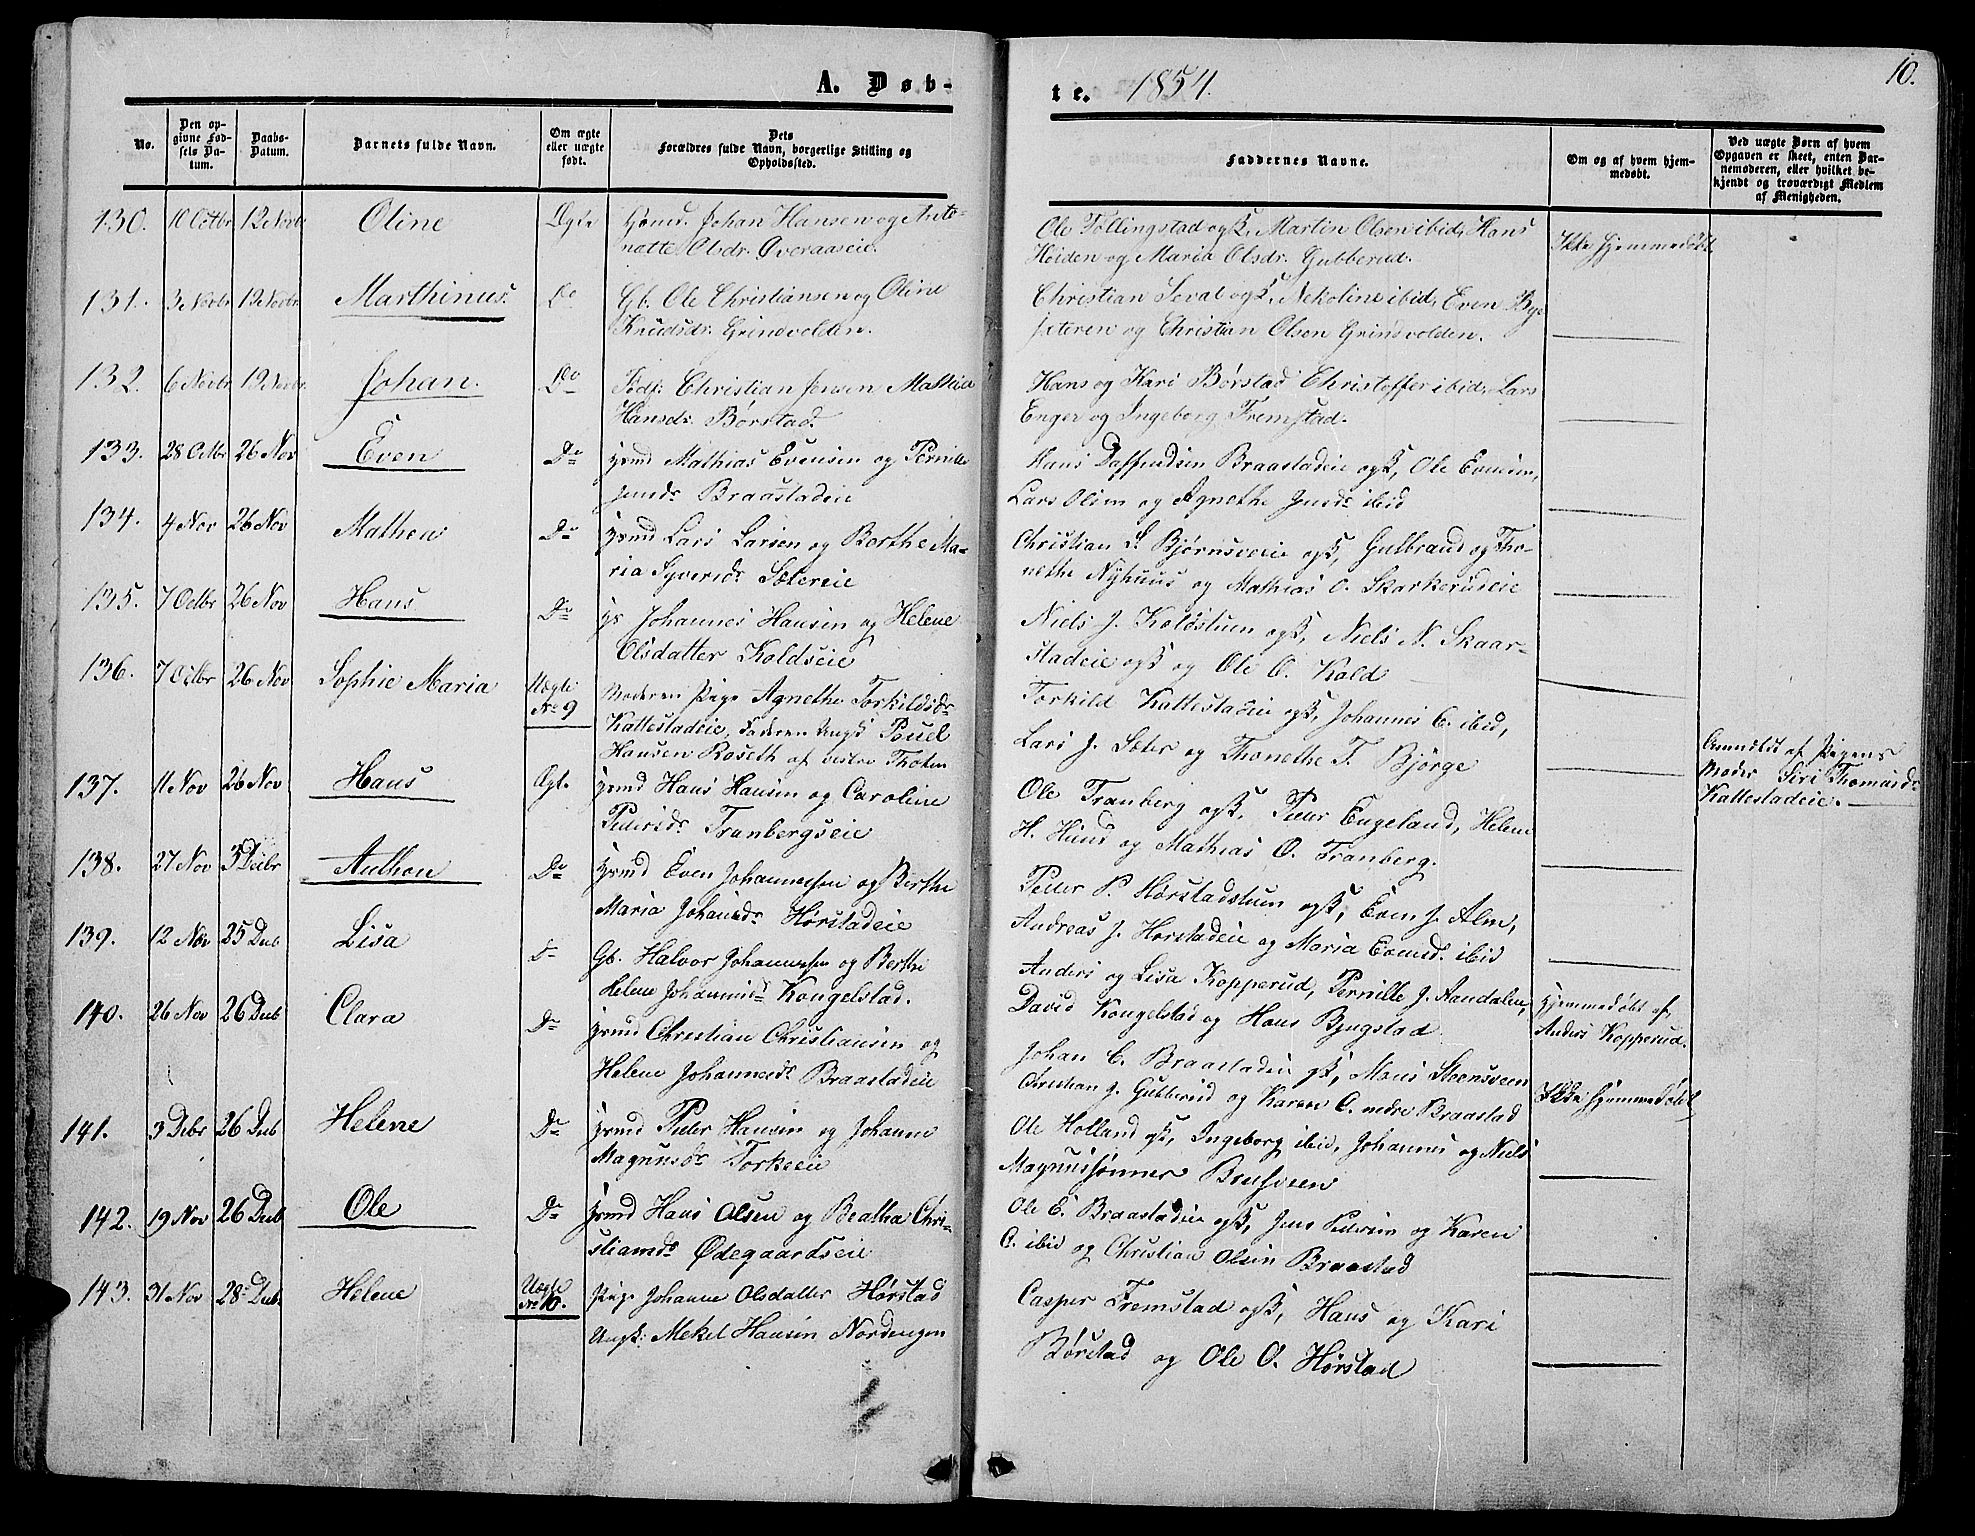 10.
A. Døb-
te. 1854.
No.
Den op-
givne Fød-
sels Da-
tum.
Daabs-
Datum.
Barnets fulde Navn.
Om ægte
eller uægte
født.
Dets
Forældres fulde Navn, borgerlige Stilling og
Opholdssted.
Faddernes Navne.
Om og af hvem hjem-
medøbt.
Ved uægte Børn af hvem
Opgaven er skeet, enten Bar-
nemoderen, eller hvilket be-
kjendt og troværdigt Medlem
af Menigheden.
130. 10 Octbr 12 Novbr Oline Ægte Huusmd. Johan Hansen og Anto-
nette Olsdr. Øveraaseie.
Ole Føllingstad og K, Martin Olsen ibid, Hans
Høiden og Maria Olsdr. Gubberud.
Ikke hjemmedøbt
131. 3 Novbr 12 Novbr Marthinus. Do Gb. Ole Christiansen og Oline
Knudsdr. Grindvolden.
Christian Seval og K, Nekoline ibid, Even Byg
sæteren og Christian Olsen Grindvolden.
132. 6 Novbr 12 Novbr Johan. Do Christian Jensen Mathia
Hansdr. Børstad.
Hans og Kari Børstad Christoffer ibid, Lars
Enger og Ingeborg Fremstad.
133. 28 Octbr 26 Nov Even Do Hrmd Mathias Evensen og Pernille
Jensdr Braastadeie
Hans Braastadeie og K, Ole Evensen,
Lars Olsen og Agnethe Jensdr ibid
134. 4 Nov 26 Nov Mathea Do Hrmd Lars Larsen og Berthe Ma-
ria Syversdr Sætereie
Christian S. Bjørnsveie og K, Gulbrand og Tho-
nethe Nyhuus og Mathias O. Skarkerudeie
135. 7 Octbr 26 Nov Hans Do Johannes Hansen og Helene
Olsdatter Koldseie
Niels J. Koldstuen og K, Niels N. Skaar-
stadeie og K og Ole O. Kold
136. 7 Octbr 26 Nov Sophie Maria Uægte
No 9
Moderen Pige Agnethe Torkildsdr
Kattestadeie, Faderen Ungk Pouel
Hansen Roseth af vestre Thoten
Torkild Kattestadeie og K, Johannes C. ibid,
Lars J. Sæter og Thonethe T. Bjørge
Anmeldt af Pigens
Moder Siri Thomasdr
Kattestadeie.
137. 11 Nov 26 Nov Hans Ægte Hrmd Hans Hansen og Caroline
Pedersdr Tranbergseie
Ole Tranberg og K, Peder Engeland, Helene
H. Hund og Mathias O. Tranberg.
138. 27 Nov 3 Decbr Anthon Do Hrmd Even Johannessen og Berthe
Maria Johansdr Hørstadeie
Peder P. Hørstadstuen og K, Even J. Alm,
Andreas J. Horstadeie og Maria Evensdr. ibid
139. 12 Nov 25 Decb Lisa Do Gb. Halvor Johannessen og Berthe
Helene Johannesdr Kongelstad.
Anders og Lisa Kopperud, Pernille J. Aandalen,
David Kongelstad og Hans Bjugstad
Hjemmedøbt af
Anders Kopperud.
140. 26 Nov 26 Decb Clara Do Hrmd Christian Christiansen og
Helene Johannesdr Braastadeie
Johan C. Braastadeie og K, Mons Steensveen
Christian J. Gubberud og Karen C. nedre Braastad
Ikke hjemmedøbt
141. 3 Debr 26 Decb Helene Do Hrmd Peder Hansen og Johanne
Magnusdr Torkeeie
Ole Holland og K, Ingeborg ibid, Johannes og Niels
Magnussønner
142. 19 Nov 26 Decb Ole Do Hrmd Hans Olsen og Beatha Chri-
stiansdr Ødegaardseie
Ole E. Braastadeie og K, Jens Pedersen og Karen
C. ibid og Christian Olsen Braastad
143. 31 Nov 28 Decb. Helene Uægte
No 10.
Pige Johanne Olsdatter Hørstad
Ungk: Mekel Hansen Nordengen
Casper Fremstad og K, Hans og Kari
Børstad og Ole O. Hørstad